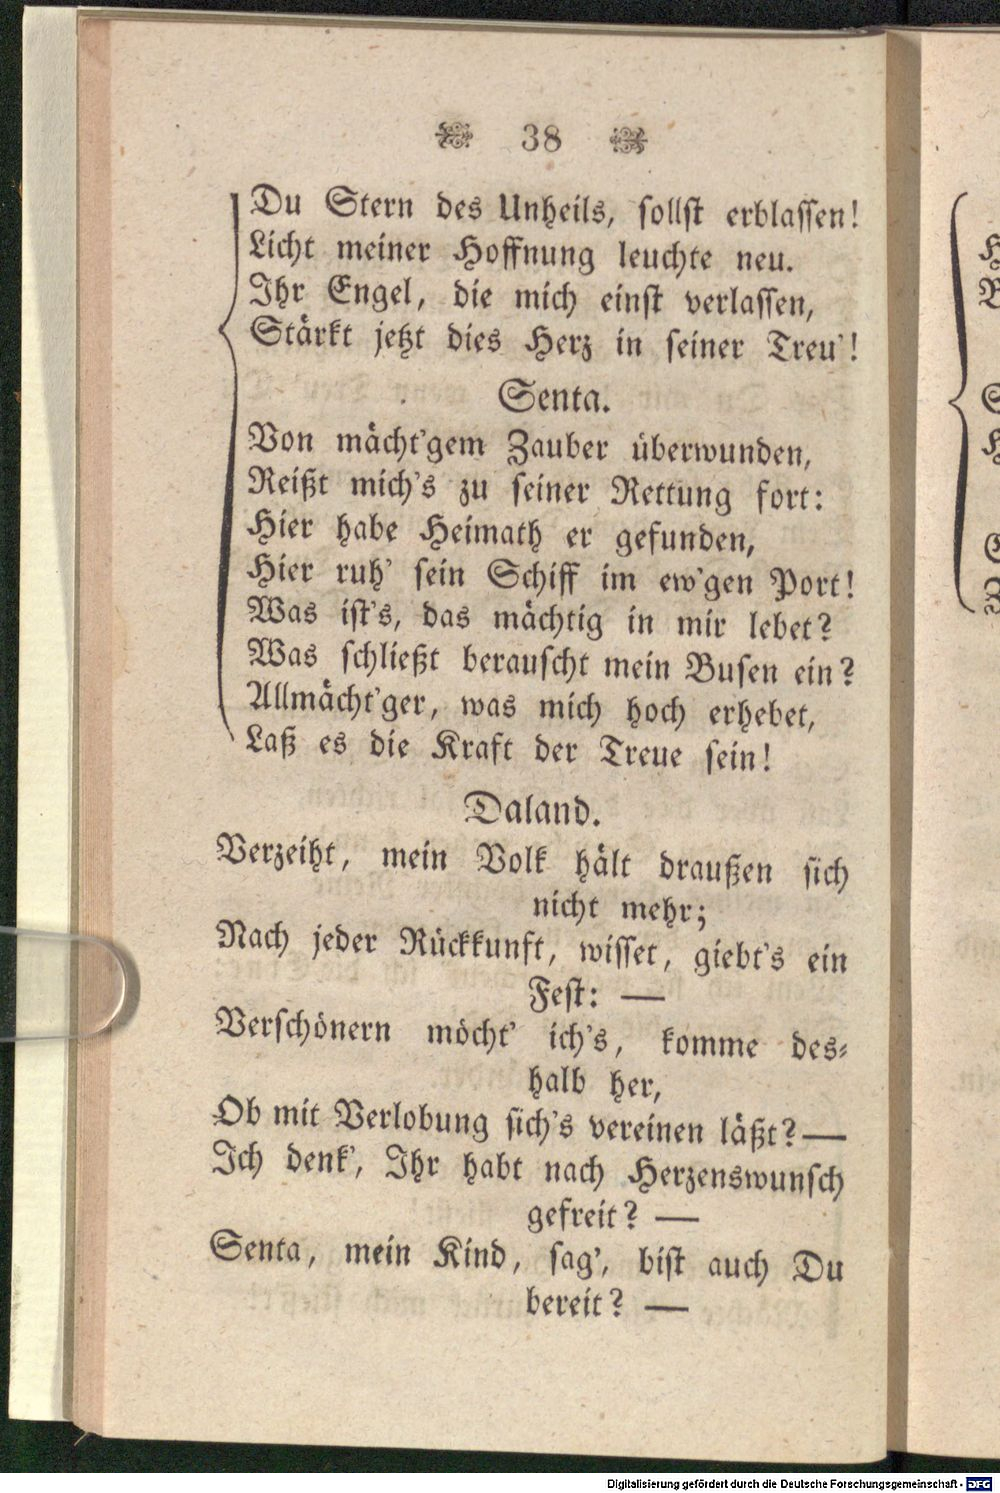 38
Du Stern des Unheils, sollst erblassen!
Licht meiner Hoffnung leuchte neu.
Ihr Engel, die mich einst verlassen,
Stärkt jetzt dies Herz in seiner Treu'!
Senta.
Von mächt'gem Zauber überwunden,
Reißt mich's zu seiner Rettung fort:
Hier habe Heimath er gefunden,
Hier ruh' sein Schiff im ew'gen Port!
Was ist's, das mächtig in mir lebet?
Was schließt berauscht mein Busen ein?
Allmächt'ger, was mich hoch erhebet,
Laß es die Kraft der Treue sein!
Daland.
Verzeiht, mein Volk hält draußen sich
nicht mehr;
Nach jeder Rückkunft, wisset, giebt's ein
Fest: —
Verschönern möcht' ich's, komme des-
halb her,
Ob mit Verlobung sich's vereinen läßt? —
Ich denk', Ihr habt nach Herzenswunsch
gefreit? —
Senta, mein Kind, sag', bist auch Du
bereit? —
Digitalisierung gefördert durch die Deutsche Forschungsgemeinschaft - DFG